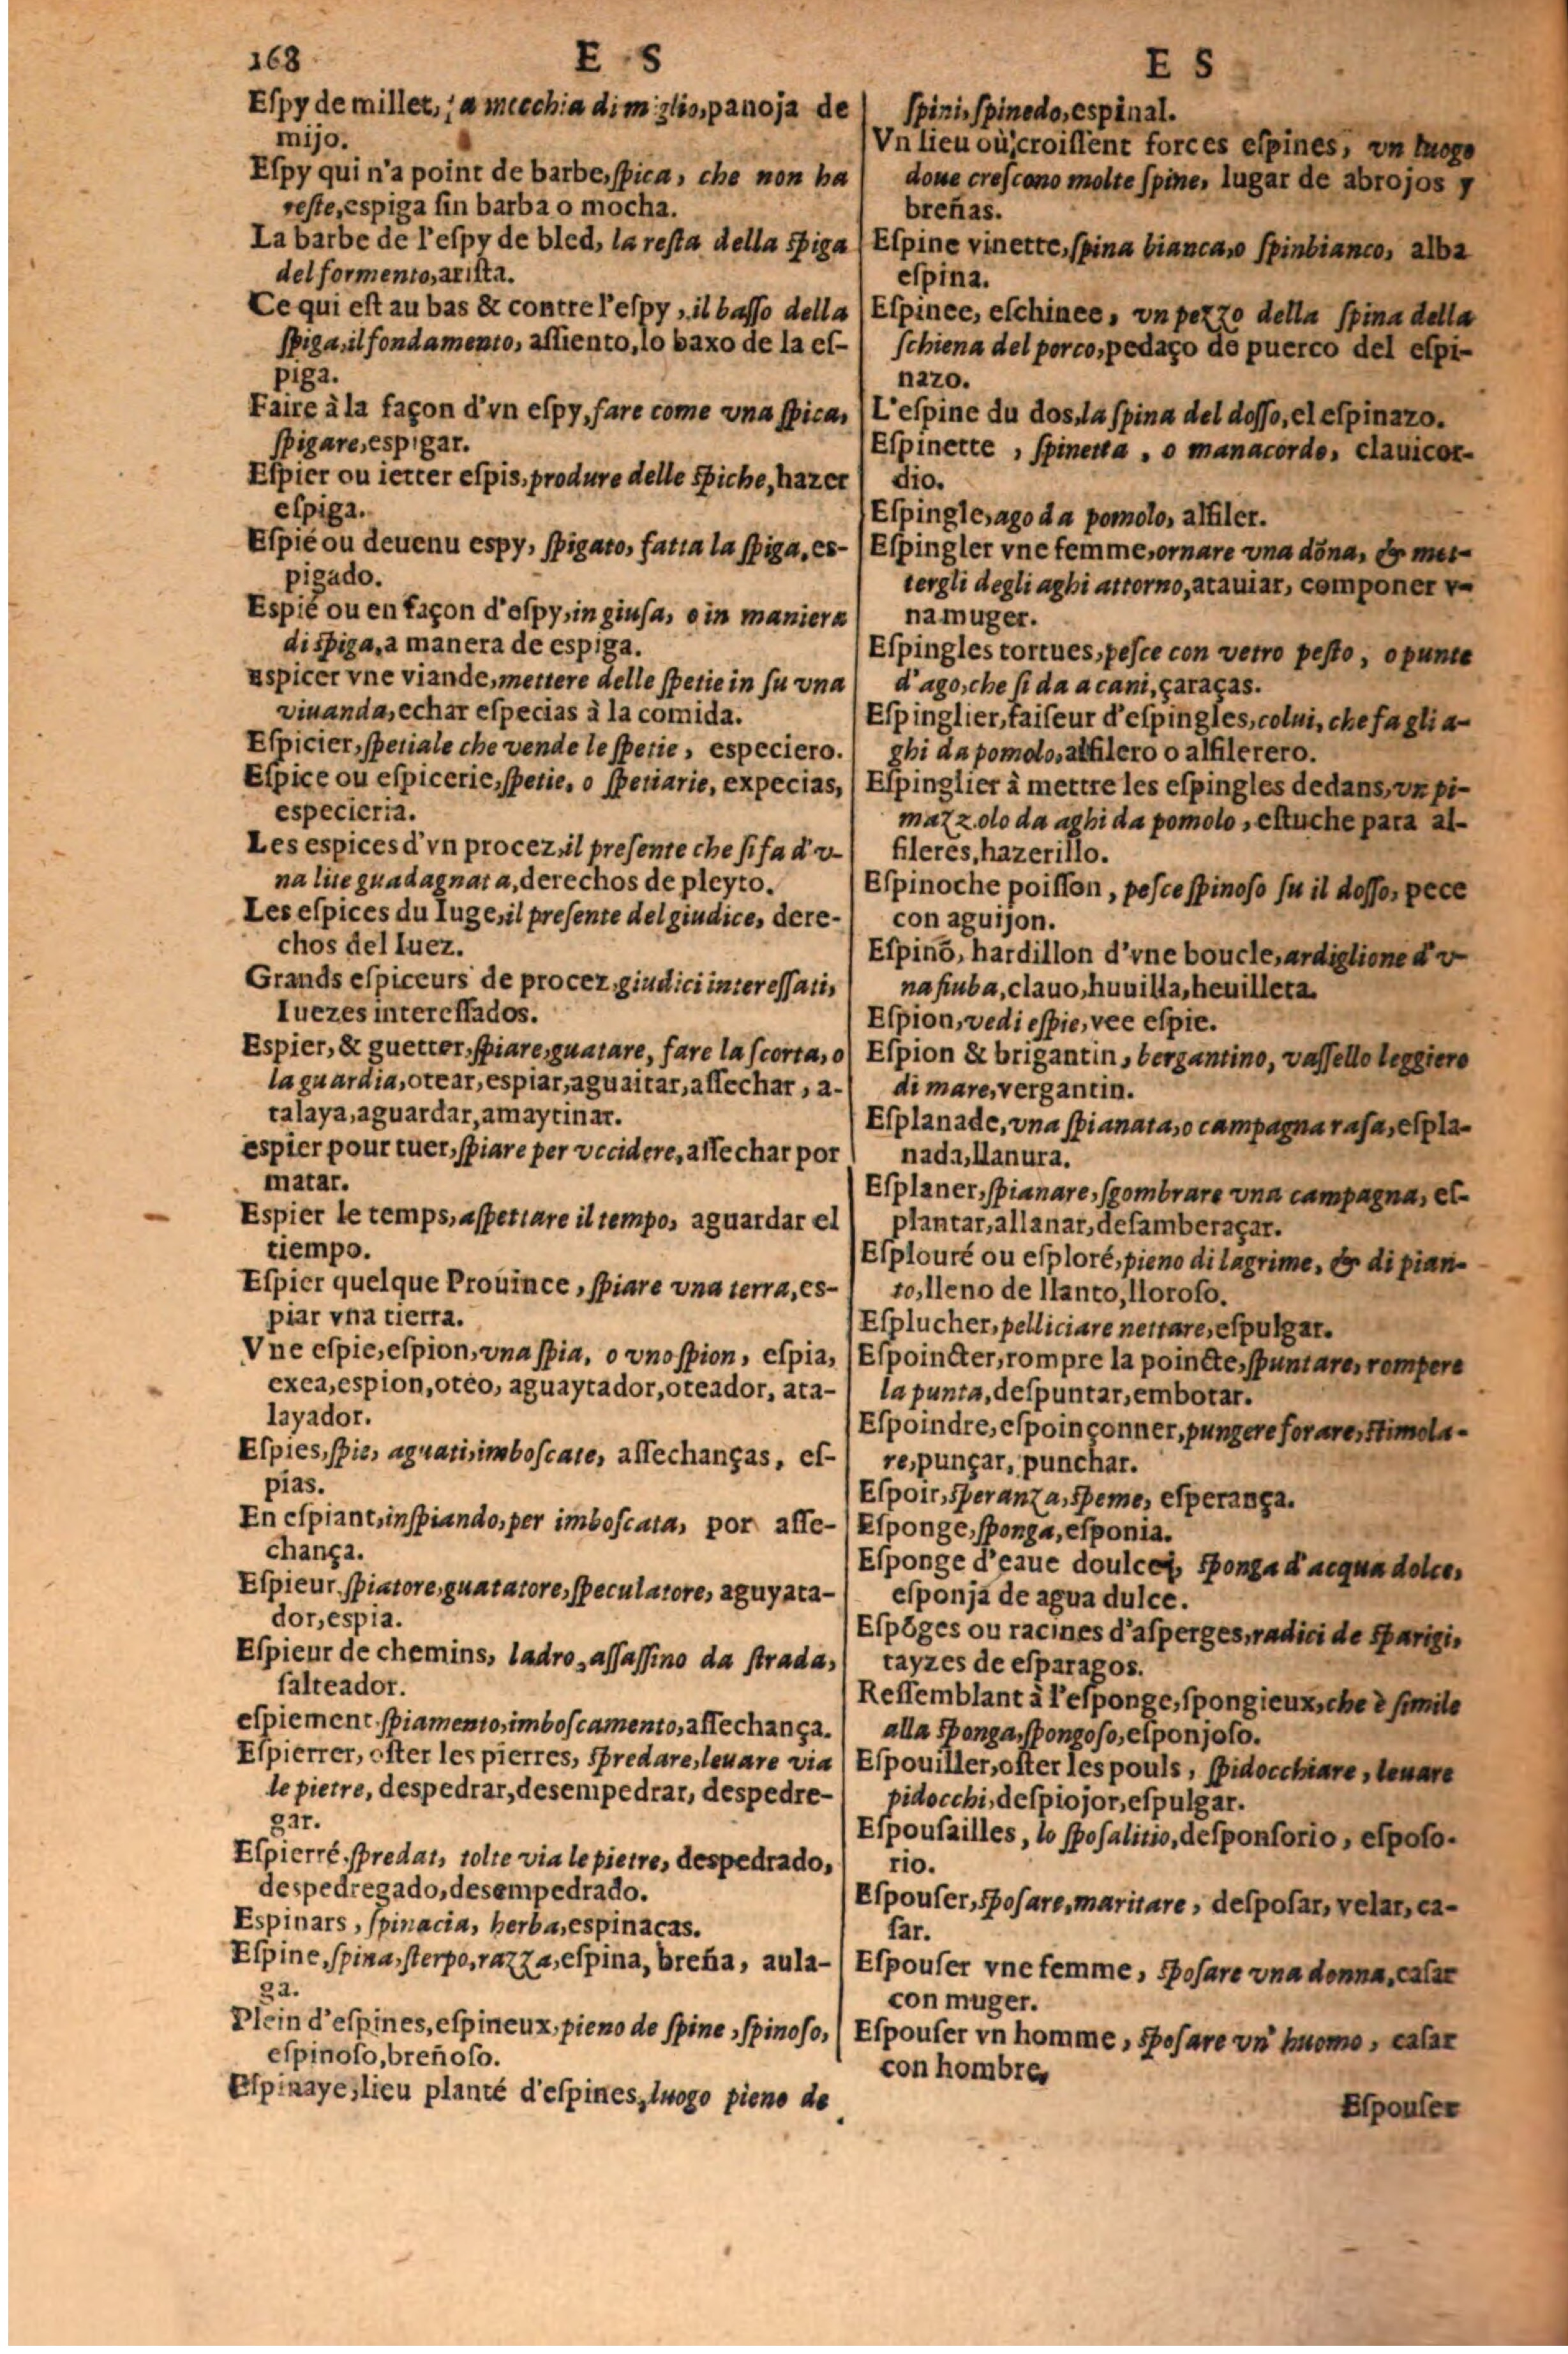 168 E S
Eſpy de millet, la mecchia di miglio, panoja de
mijo.
Eſpy qui n'a point de barbe, ſpica, che non ha
reſte, espiga ſin barba o mocha.
La barbe de l'eſpy de bled, la reſta della ſpiga
del formento, ariſta.
Ce qui eſt au bas & contre l'eſpy, il baſſo della
ſpiga, il fondamento, aſſiento, lo baxo de la eſ-
piga.
Faire à la façon d'vn eſpy, fare come vna ſpica,
ſpigare, espigar.
Eſpier ou ietter eſpis, produre delle ſpiche, hazer
eſpiga.
Eſpié ou deuenu espy, ſpigato, fatta la ſpiga, es-
pigado.
Espié ou en façon d'eſpy, in giuſa, o in maniera
di ſpiga, a manera de espiga.
Espicer vne viande, mettere delle ſpetie in ſu vna
viuanda, echar eſpecias à la comida.
Eſpicier, ſpetiale che vende le ſpetie, especiero.
Eſpice ou eſpicerie, ſpetie, o ſpetiarie, expecias,
especieria.
Les espices d'vn procez, il preſente che ſi fa d'v-
na lite guadagnata, derechos de pleyto.
Les eſpices du Iuge, il preſente del giudice, dere-
chos del Iuez.
Grands eſpiceurs de procez, giudici intereſſati,
Iuezes intereſſados.
Espier, & guetter, ſpiare, guatare, fare la ſcorta, o
la guardia, otear, espiar, aguaitar, aſſechar, a-
talaya, aguardar, amaytinar.
espier pour tuer, ſpiare per vccidere, aſſechar por
matar.
Espier le temps, aſpettare il tempo, aguardar el
tiempo.
Eſpier quelque Prouince, ſpiare vna terra, es-
piar vna tierra.
Vne eſpie, eſpion, vna ſpia, o vno ſpion, eſpia,
exea, espion, oteo, aguaytador, oteador, ata-
layador.
Eſpies, ſpie, aguati, imboſcate, aſſechanças, eſ-
pias.
En eſpiant, inſpiando, per imboſcata, por aſſe-
chança.
Eſpieur, ſpiatore, guatatore, ſpeculatore, aguyata-
dor, espia.
Eſpieur de chemins, ladro, aſſaſſino da ſtrada,
ſalteador.
eſpiement, ſpiamento, imboſcamento, aſſechança.
Eſpierrer, oſter les pierres, ſpredare, leuare via
le pietre, despedrar, desempedrar, despedre-
gar.
Eſpierré, ſpredat, tolte via le pietre, despedrado,
despedregado, desempedrado.
Espinars, ſpinacia, herba, espinacas.
Eſpine, ſpina, ſterpo, razza, eſpina, breña, aula-
ga.
Plein d'eſpines, eſpineux, pieno de ſpine, ſpinoſo,
eſpinoſo, breñoſo.
Eſpinaye, lieu planté d'eſpines, luogo pieno de
E S
ſpini, ſpinedo, espinal.
Vn lieu où croiſſent forces eſpines, vn luogo
doue creſcono molte ſpine, lugar de abrojos y
breñas.
Eſpine vinette, ſpina bianca, o ſpinbianco, alba
eſpina.
Eſpinee, eſchinee, vn pezzo della ſpina della
ſchiena del porco, pedaço de puerco del eſpi-
nazo.
L'eſpine du dos, la ſpina del doſſo, el eſpinazo.
Eſpinette, ſpinetta, o manacordo, clauicor-
dio.
Eſpingle, ago da pomolo, alfiler.
Eſpingler vne femme, ornare vna dõna, & met-
tergli degli aghi attorno, atauiar, componer v-
na muger.
Eſpingles tortues, peſce con vetro peſto, o punte
d'ago, che ſi da a cani, çaraças.
Eſpinglier, faiſeur d'eſpingles, colui, che fa gli a-
ghi da pomolo, alfilero o alfilerero.
Eſpinglier à mettre les eſpingles dedans, vn pi-
mazzolo da aghi da pomolo, eſtuche para al-
fileres, hazerillo.
Eſpinoche poiſſon, peſce ſpinoſo ſu il doſſo, pece
con aguijon.
Eſpinõ, hardillon d'vne boucle, ardiglione d'v-
na fiuba, clauo, huuilla, heuilleta.
Eſpion, vedi eſpie, vee eſpie.
Eſpion & brigantin, bergantino, vaſſello leggiero
di mare, vergantin.
Eſplanade, vna ſpianata, o campagna raſa, eſpla-
nada, llanura.
Eſplaner, ſpianare, ſgombrare vna campagna, eſ-
plantar, allanar, deſamberaçar.
Eſplouré ou eſploré, pieno di lagrime, & di pian-
to, lleno de llanto, lloroſo.
Eſplucher, pelliciare nettare, eſpulgar.
Eſpoincter, rompre la poincte, ſpuntare, rompere
la punta, deſpuntar, embotar.
Eſpoindre, eſpoinçonner, pungere forare, ſtimola-
re, punçar, punchar.
Eſpoir, ſperanza, ſpeme, eſperança.
Eſponge, ſponga, eſponia.
Eſponge d'eaue doulce, ſponga d'acqua dolce,
eſponja de agua dulce.
Eſpõges ou racines d'aſperges, radici de ſparigi,
rayzes de eſparagos.
Reſſemblant à l'eſponge, ſpongieux, che è ſimile
alla ſponga, ſpongoſo, eſponjoſo.
Eſpouiller, oſter les pouls, ſpidocchiare, leuare
pidocchi, deſpiojor, eſpulgar.
Eſpouſailles, lo ſpoſalitio, deſponſorio, eſpoſo-
rio.
Eſpouſer, ſpoſare, maritare, deſpoſar, velar, ca-
ſar.
Eſpouſer vne femme, ſpoſare vna donna, caſar
con muger.
Eſpouſer vn homme, ſpoſare vn' huomo, caſar
con hombre.
Eſpouſer